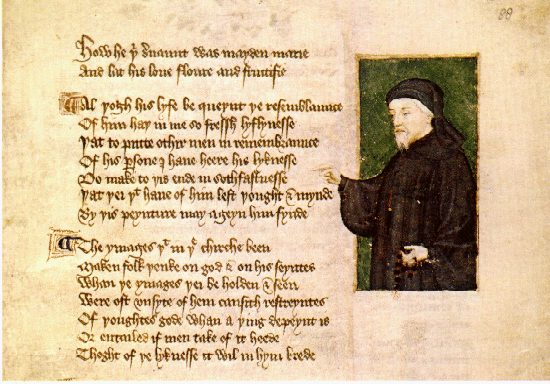 88
How he þi seruaunt was mayden marie
And lat his loue floure and fructifie
Al þogh his lyfe be queynt þe resemblaunce
Of him haþ in me so fressh lyflynesse
Þat to putte othir men in remembraunce
Of his ꝑsone I haue heere his lyknesse
Do make to þis ende in sothfastnesse
Þat þei þt haue of him lest þought & mynde
By þis peynture may ageyn him fynde
The ymages þt in þe chirche been
Maken folk þenke on god & on his seyntes
Whan þe ymages þei beholden & seen
Were oft vnsyte of hem causith restreyntes
Of þoughtes gode whan a þing depeynt is
Or entailed if men take of it heede
Thoght of þe lyknesse it wil in hym brede